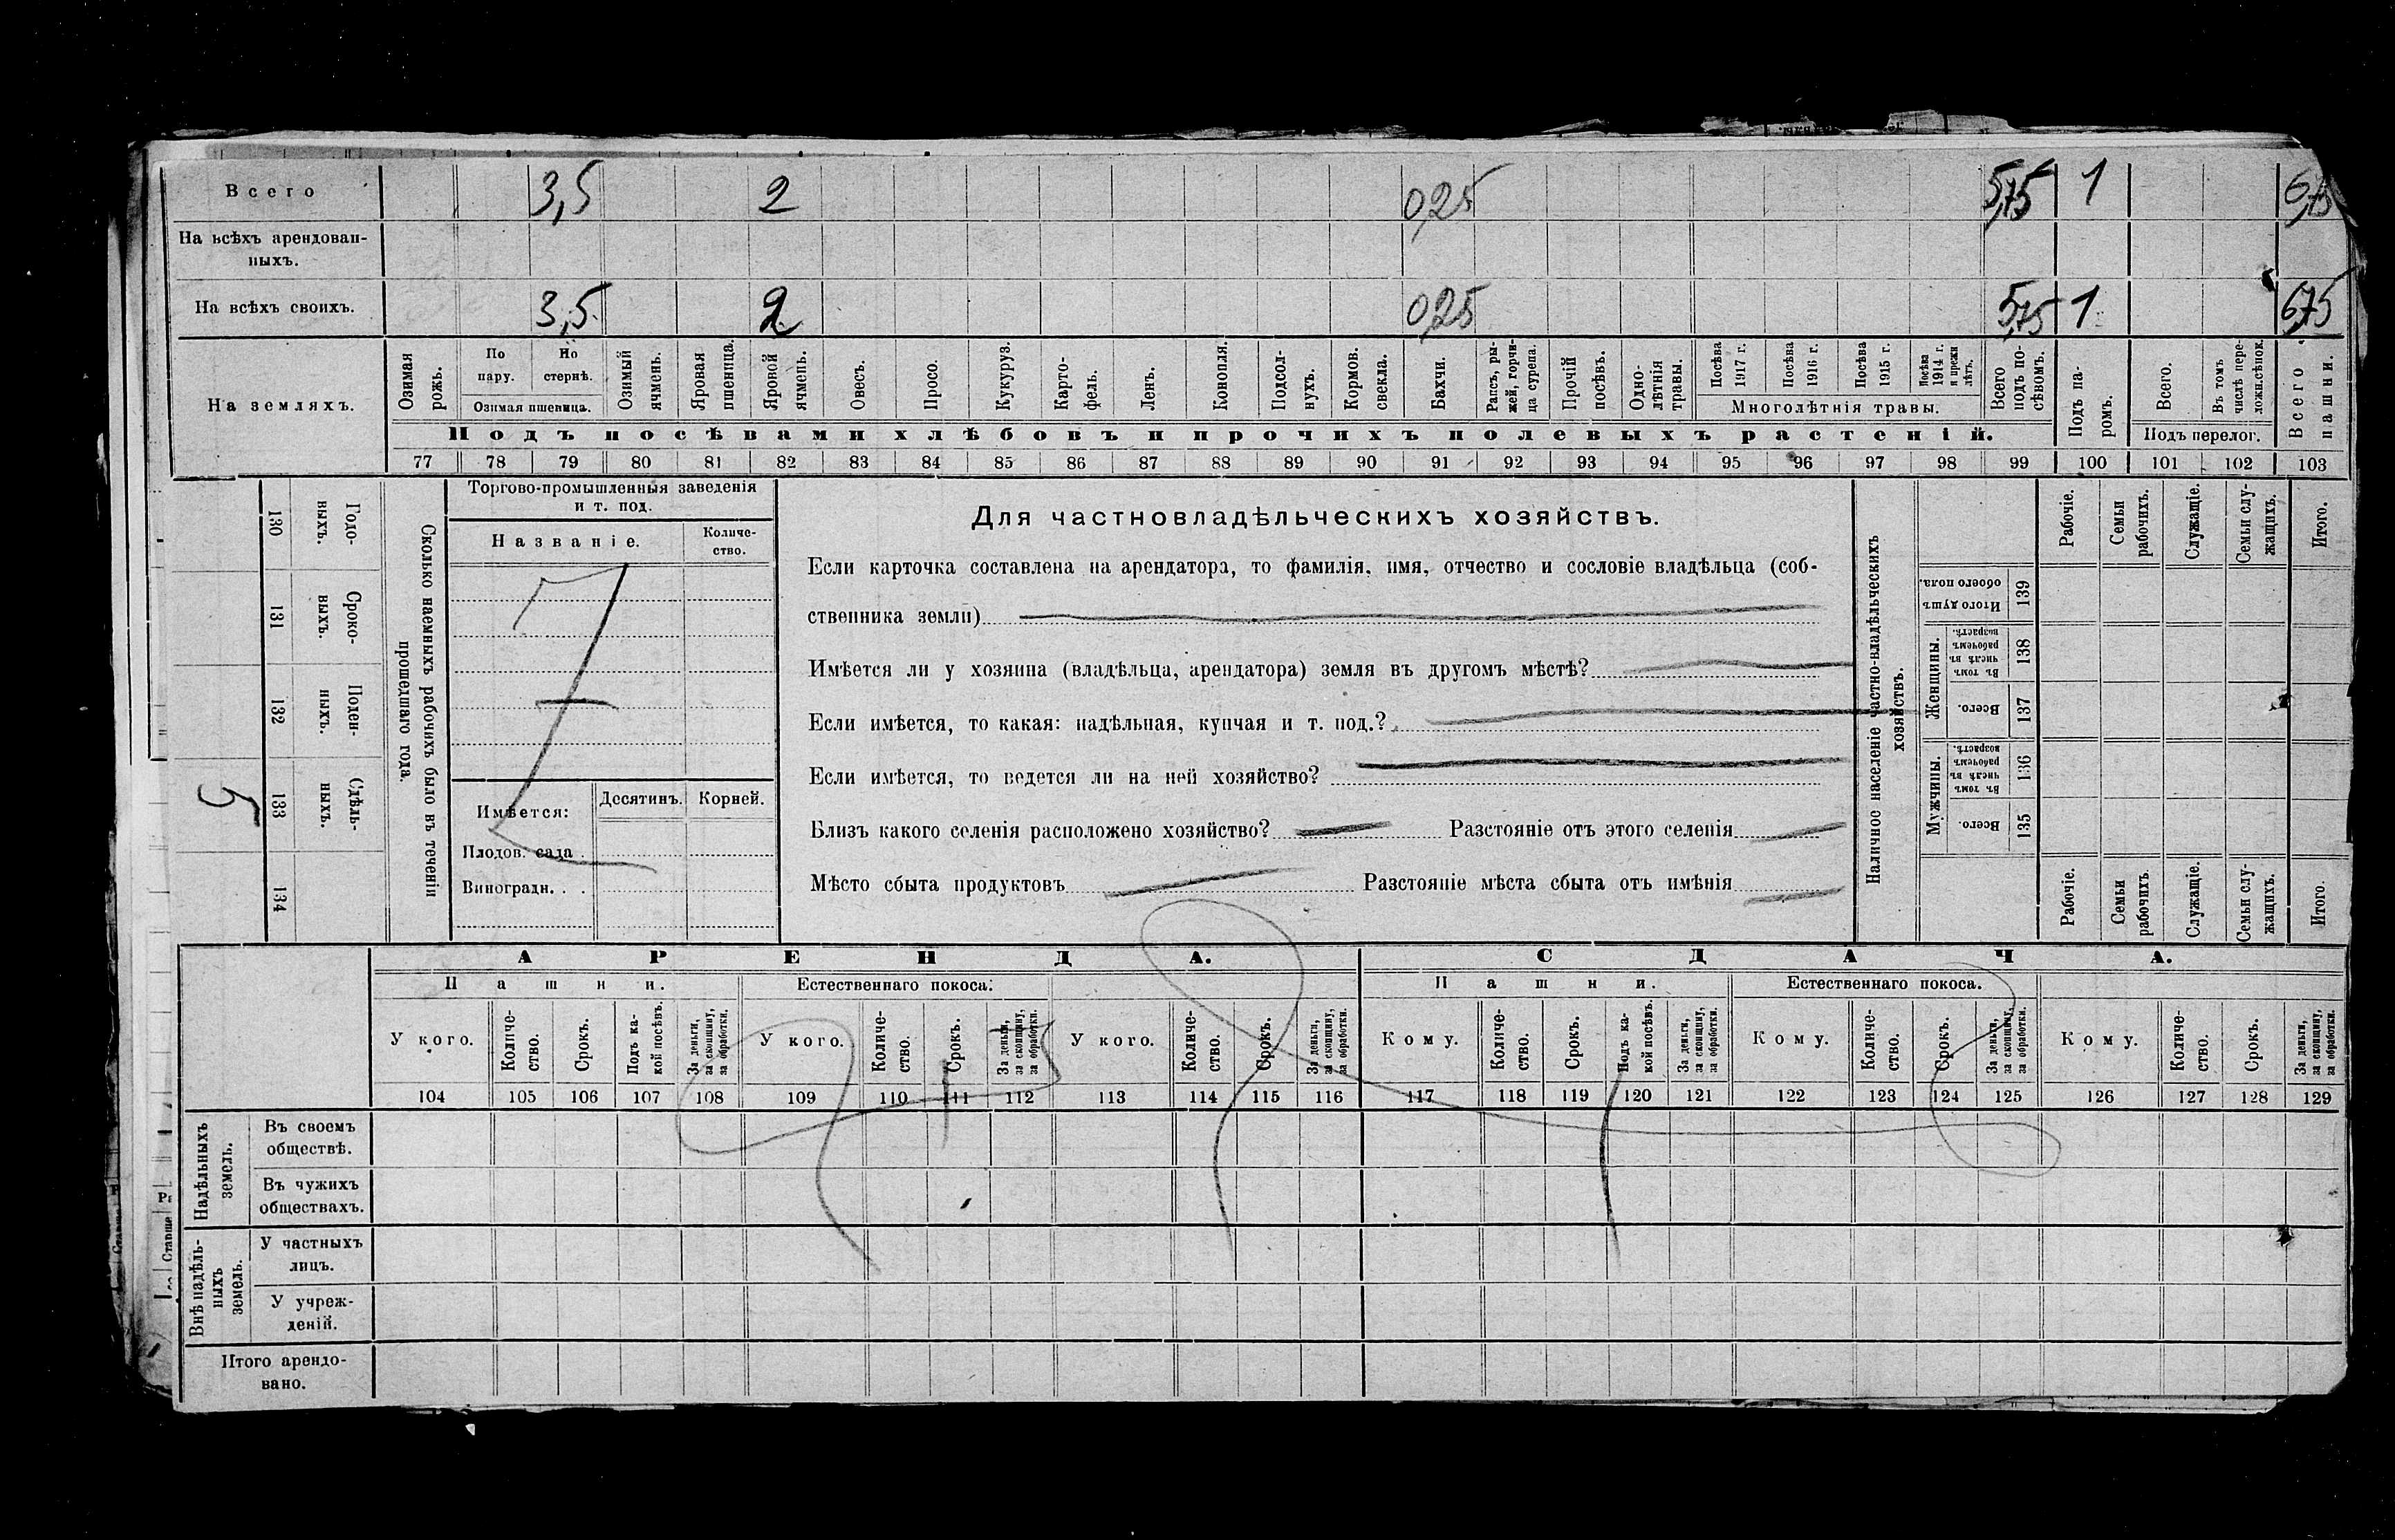 Всего 3,5 2 0,25 5,75 1 6,75
На всѣхъ арендован-
ныхъ.
На всѣхъ своихъ. 3,5 2 0,25 5,75 1 6,75
На земляхъ.
Озимая рожь.
По пару.
По стернѣ.
Озимая пшеница.
Озимый ячмень.
Яровая пшеница.
Яровой ячмень.
Овесъ.
Просо.
Кукуруз.
Карто-
фель.
Ленъ.
Конопля.
Подсол-
нухъ.
Кормов. свекла.
Бахчи.
Рапсъ, ры-
жей, горчи-
ца сурепа.
Прочій посѣвъ.
Одно-
лѣтнія травы.
Посѣва 1917 г.
Посѣва 1916 г.
Посѣва 1915 г.
Посѣва 1914 г. и прежн лѣтъ.
Многолѣтнія травы.
Всего подъ по-
сѣвомъ.
Подъ па-
ромъ.
Всего.
Въ томъ числѣ пере-
ложн.сѣнок.
Подъ перелог.
Всего пашни.
Подъ посѣвами хлѣбовъ и прочихъ полевыхъ растеній.
77 78 79 80 81 82 83 84 85 86 87 88 89 90 91 92 93 94 95 96 97 98 99 100 101 102 103
Сколько наемныхъ рабочихъ было въ теченіи
прошедшаго года.
Годо-
выхъ.
130
Сроко-
выхъ.
131
Поден-
ныхъ.
132
Сдѣль-
ныхъ.
133
134
5
Торгово-промышленныя заведенія
и т. под.
Названіе.
Количе-
ство.
Имѣется:
Десятинъ.
Корней.
Плодов. сада .
Виноградн. . .
Для частновладѣльческихъ хозяйствъ.
Если карточка составлена на арендатора, то фамилія, имя, отчество и сословіе владѣльца (соб-
ственника земли)
Имѣется ли у хозяина (владѣльца, арендатора) земля въ другомъ мѣстѣ?
Если имѣется, то какая: надѣльная, купчая и т. под.?
Если имѣется, то ведется ли на ней хозяйство?
Близъ какого селенія расположено хозяйство? Разстояніе отъ этого селенія
Мѣсто сбыта продуктовъ Разстояніе мѣста сбыта отъ имѣнія
Наличное населеніе частно-владѣльческихъ
хозяйствъ.
Рабочіе.
Семьи рабочихъ.
Служащіе.
Семьи слу-
жащихъ.
Итого.
Итого душъ обоего пола.
139
Женщины.
Въ томъ числѣ въ рабочемъ возрастѣ.
138
Всего.
137
Мужчины.
Въ томъ числѣ въ рабочемъ возрастѣ.
136
Всего.
135
Рабочіе.
Семьи рабочихъ.
Служащіе.
Семьи слу-
жащихъ.
Итого.
АРЕНДА.
СДАЧА.
Пашни.
Естественнаго покоса.
Пашни.
Естественнаго покоса.
У кого.
Количе-
ство.
Срокъ.
Подъ ка-
кой посѣвъ.
За деньги,
за скопщину,
за обработки.
У кого.
Количе-
ство.
Срокъ.
За деньги,
за скопщину,
за обработки.
У кого.
Количе-
ство.
Срокъ.
За деньги,
за скопщину,
за обработки.
Кому.
Количе-
ство.
Срокъ.
Подъ ка-
кой посѣвъ.
За деньги,
за скопщину,
за обработки.
Кому.
Количе-
ство.
Срокъ.
За деньги,
за скопщину,
за обработки.
Кому.
Количе-
ство.
Срокъ.
За деньги,
за скопщину,
за обработки.
104 105 106 107 108 109 110 111 112 113 114 115 116 117 118 119 120 121 122 123 124 125 126 127 128 129
Надѣльныхъ
земель.
Въ своемъ
обществѣ.
Въ чужихъ
обществахъ.
Внѣ надѣль-
ныхъ
земель.
У частныхъ
лицъ.
У учреж-
деній.
Итого арендо-
вано.